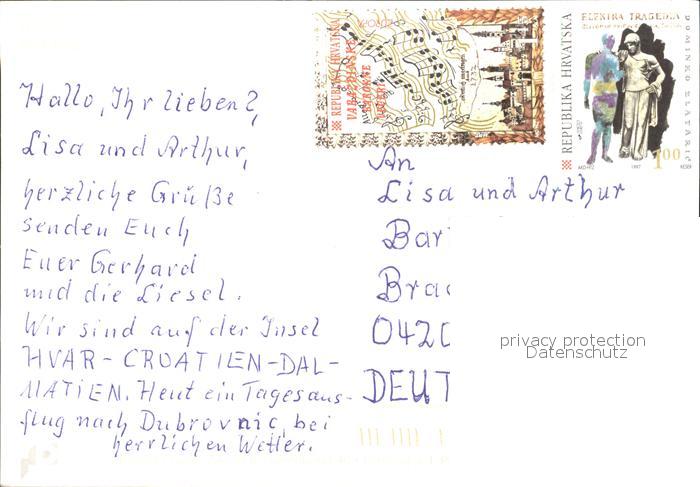 Hallo, Ihr lieben 2,
Lisa und Arthur,
herzliche Grüße
senden Euch
Euer Gerhard
und die Liesel.
Wir sind auf der Insel
HVAR-CROATIEN-DAL-
MATIEN. Heut ein Tagesaus-
flug nach Dubrovnic, bei
herrlichen Wetter.
REPUBLIKA HRVATSKA
VARAŽDINSKE
BAROKNE
VEČERI
ELEKTRA TRAGEDIA
REPUBLIKA HRVATSKA
DOMINKO ZLATARIĆ
1.00
1997
An
Lisa und Arthur
Bar
Bra
042
DEUT
privacy protection
Datenschutz